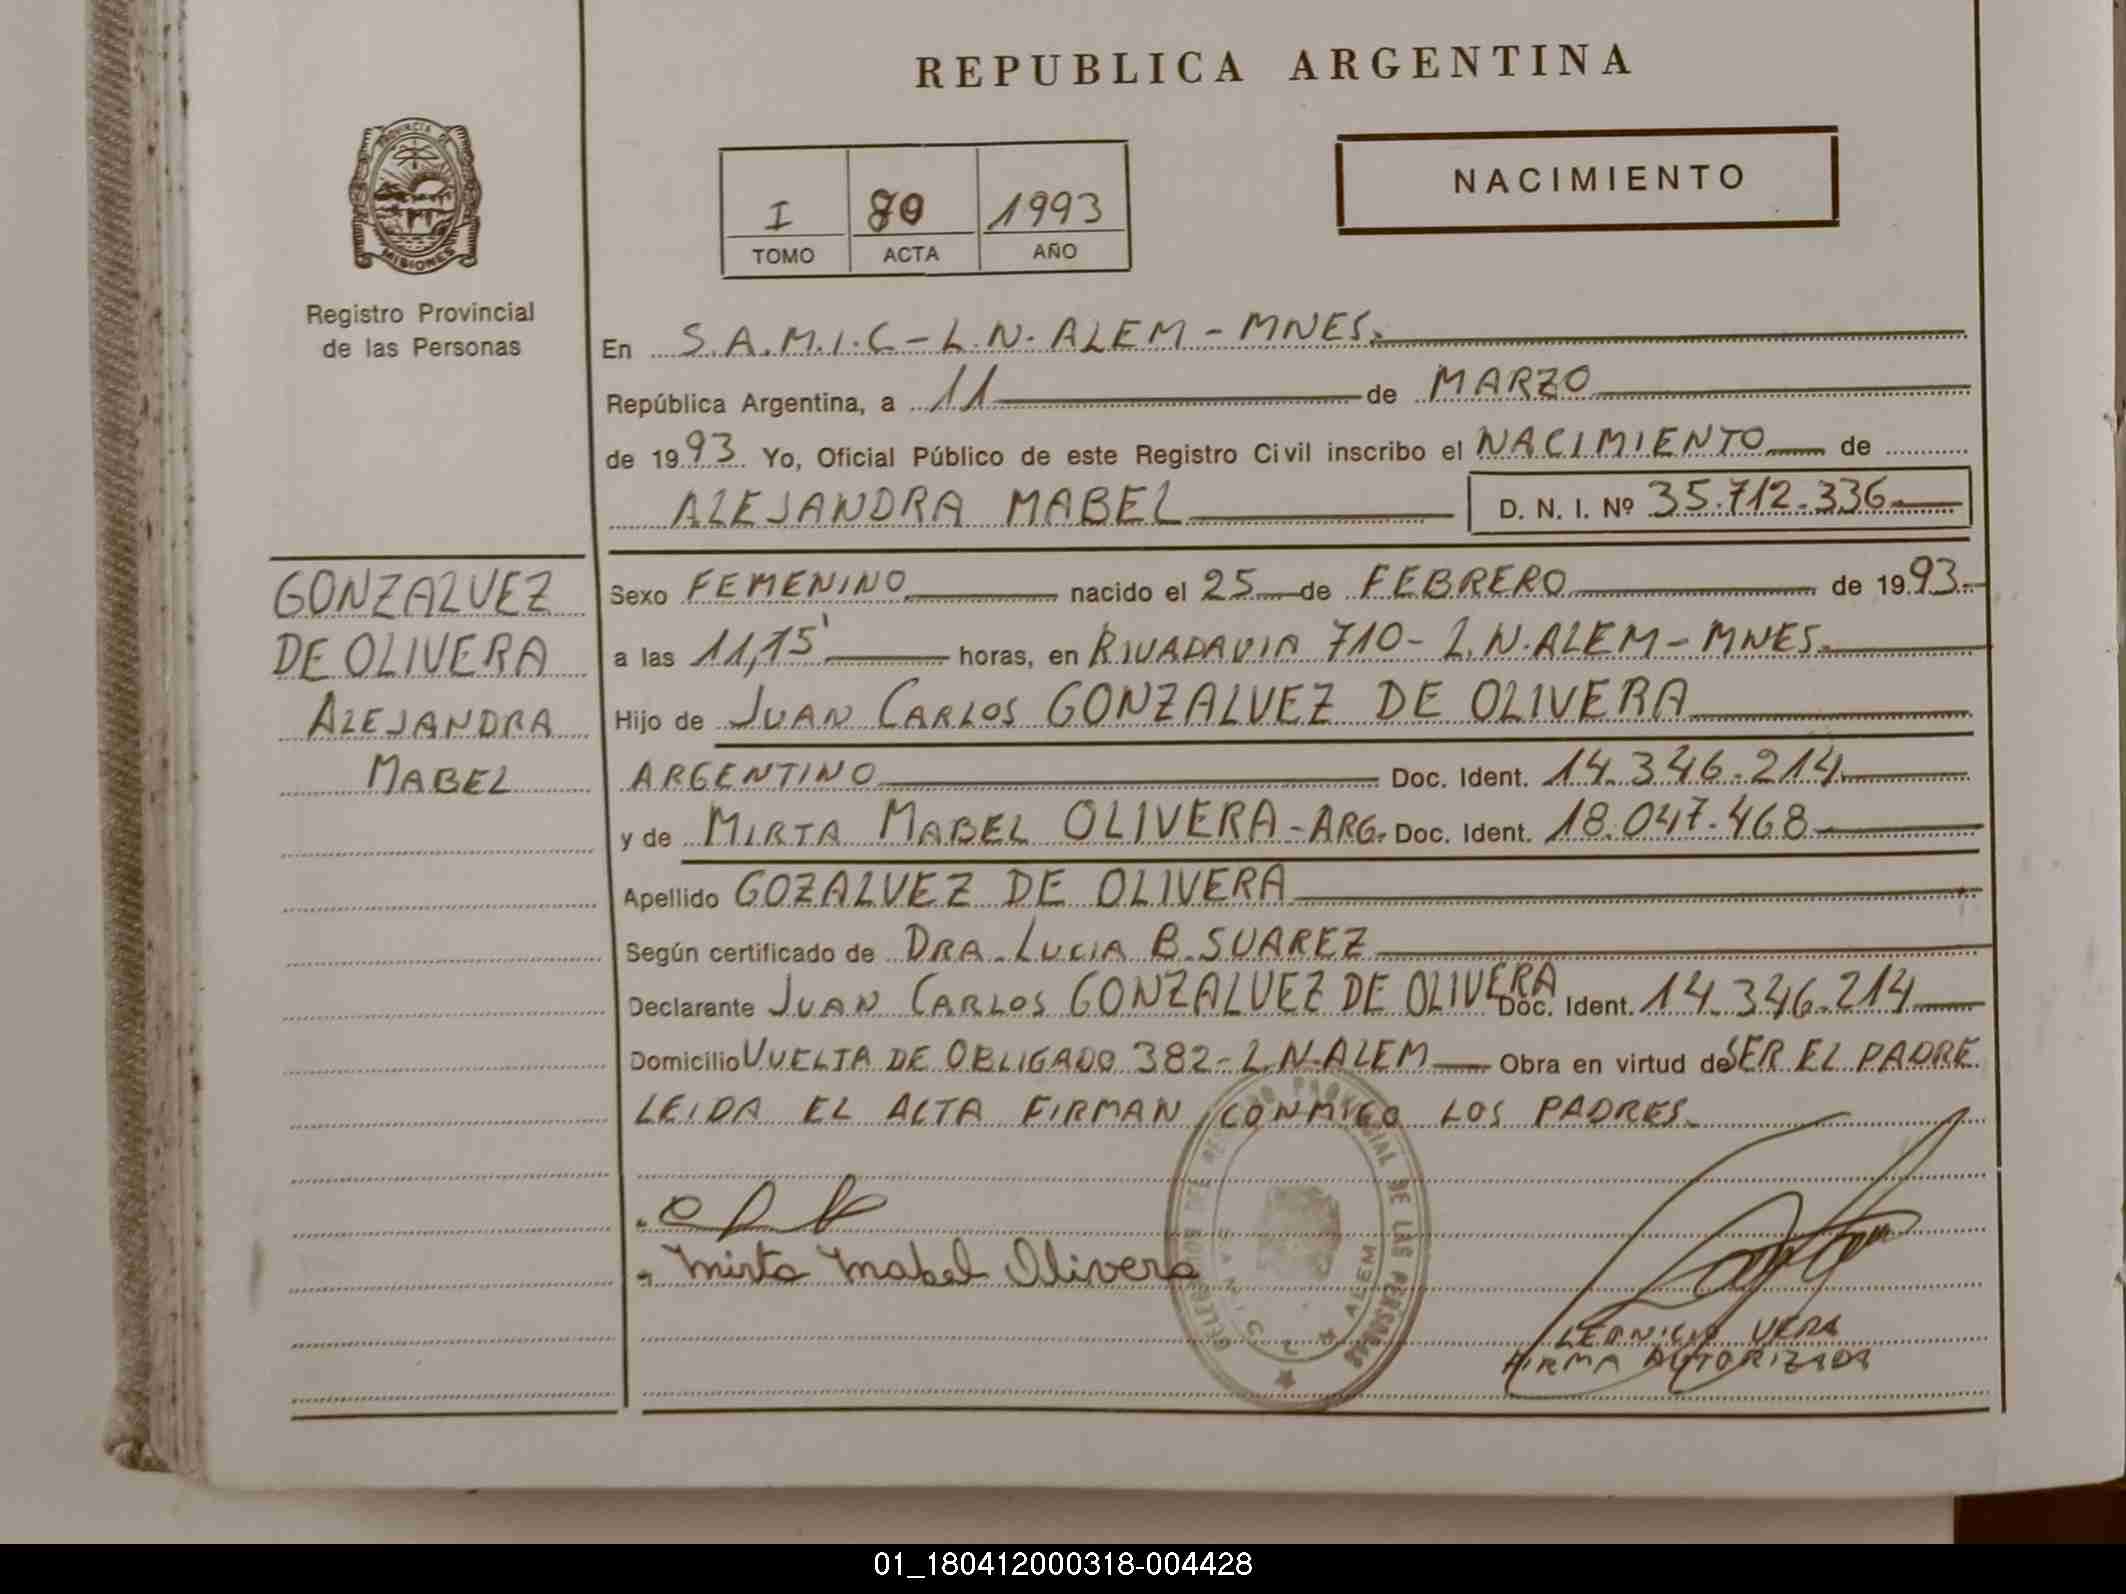 REPUBLICA ARGENTINA
NACIMIENTO
I 80 1993
TOMO ACTA AÑO
PROVINCIA DE
MISIONES
Registro Provincial
de las Personas
En S.A.M.I.C - L.N. ALEM - MNES.
República Argentina, a 11 de MARZO
de 1993 Yo, Oficial Público de este Registro Civil inscribo el NACIMIENTO de
ALEJANDRA MABEL D. N. I. Nº 35.712.336
GONZALVEZ
DE OLIVERA
ALEJANDRA
MABEL
Sexo FEMENINO nacido el 25 de FEBRERO de 1993
a las 11,15' horas, en RIVADAVIA 710 - L.N. ALEM - MNES.
Hijo de JUAN CARLOS GONZALVEZ DE OLIVERA
ARGENTINO Doc. Ident. 14.346.214
y de MIRTA MABEL OLIVERA - ARG. Doc. Ident. 18.047.468
Apellido GOZALVEZ DE OLIVERA
Según certificado de DRA. LUCIA B. SUAREZ
Declarante JUAN CARLOS GONZALVEZ DE OLIVERA Doc. Ident. 14.346.214
Domicilio VUELTA DE OBLIGADO 382 - L.N. ALEM Obra en virtud de SER EL PADRE.
LEIDA EL ACTA FIRMAN CONMIGO LOS PADRES.
Mirta Mabel Olivera
PROVINCIAL DE LAS PERSONAS
ALEM
VERA
FIRMA AUTORIZADA
01_180412000318-004428